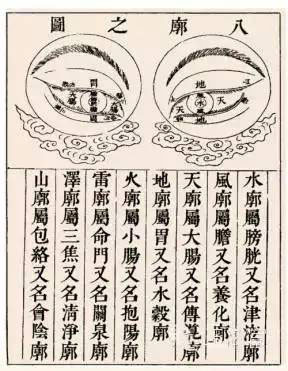 八廓之圖
地
天
水
天
水廓屬膀胱又名津液廓
風廓屬膽又名養化廓
天廓屬大腸又名傳導廓
地廓屬胃又名水穀廓
火廓屬小腸又名抱陽廓
雷廓屬命門又名關泉廓
澤廓屬三焦又名清淨廓
山廓屬包絡又名會陰廓